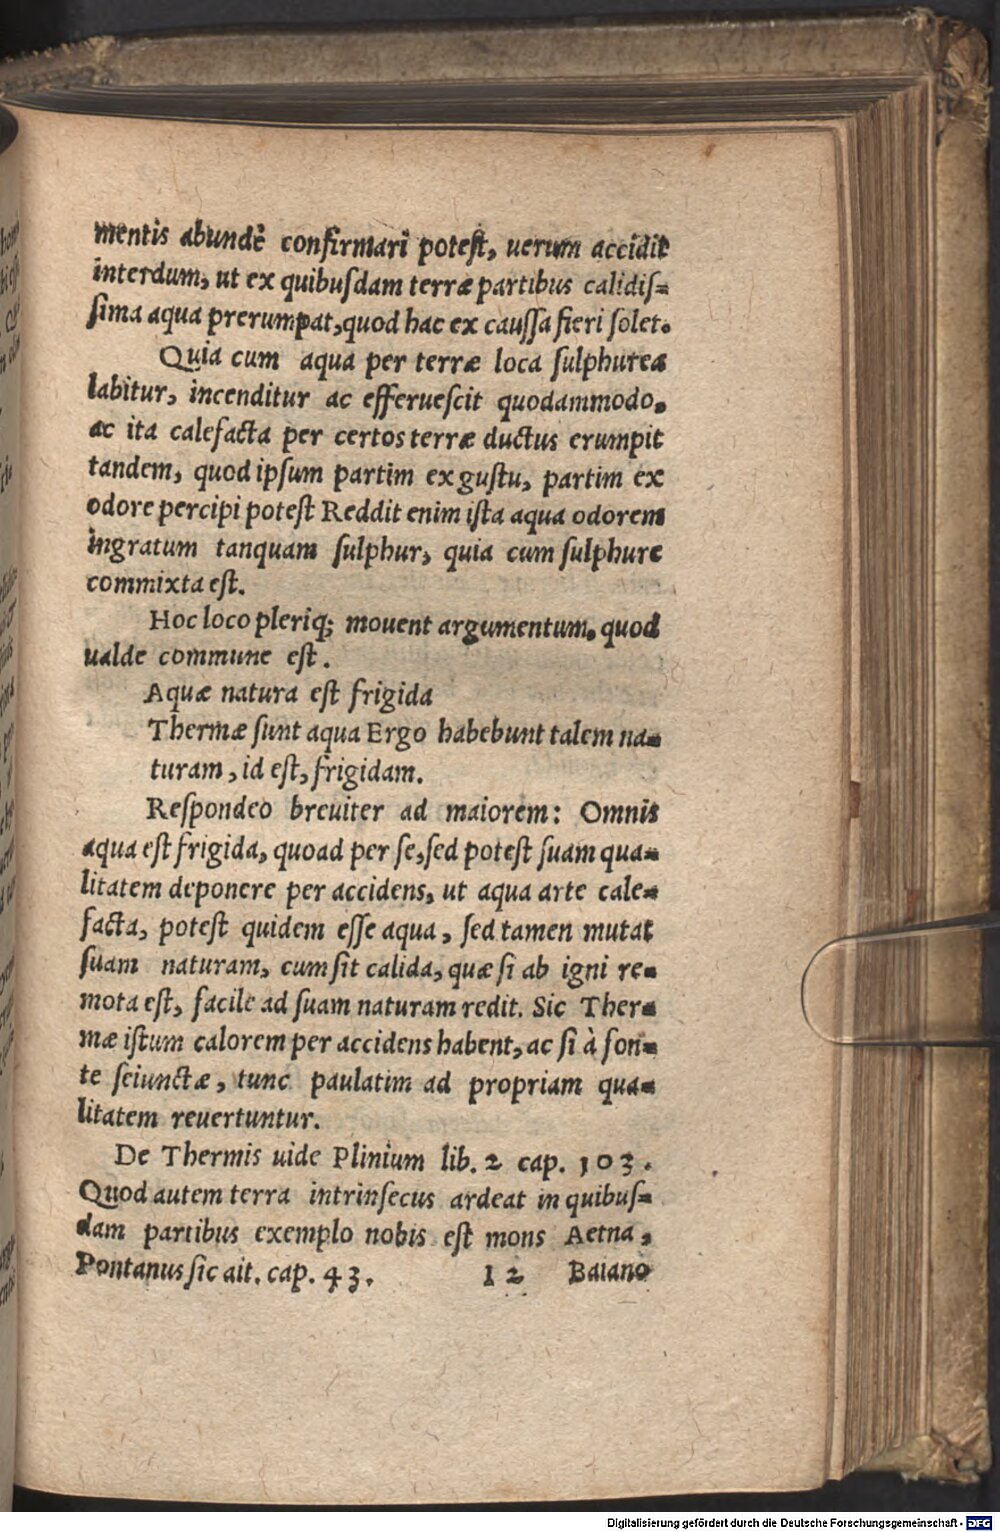 mentis abundè confirmari poteſt, uerum accidit
interdum, ut ex quibuſdam terræ partibus calidiſ=
ſima aqua prerumpat, quod hac ex cauſſa fieri ſolet.
Quia cum aqua per terræ loca ſulphurea
labitur, incenditur ac efferueſcit quodammodo,
ac ita calefacta per certos terræ ductus erumpit
tandem, quod ipſum partim ex guſtu, partim ex
odore percipi poteſt Reddit enim iſta aqua odorem
ingratum tanquam ſulphur, quia cum ſulphure
commixta eſt.
Hoc loco pleriq; mouent argumentum, quod
ualde commune eſt.
Aquæ natura eſt frigida
Thermæ ſunt aqua Ergo habebunt talem na=
turam, id eſt, frigidam.
Reſpondeo breuiter ad maiorem: Omnis
aqua eſt frigida, quoad per ſe, ſed poteſt ſuam qua=
litatem deponere per accidens, ut aqua arte cale=
facta, poteſt quidem eſſe aqua, ſed tamen mutat
ſuam naturam, cum ſit calida, quæ ſi ab igni re=
mota eſt, facile ad ſuam naturam redit. Sic Ther=
mæ iſtum calorem per accidens habent, ac ſi à fon=
te ſeiunctæ, tunc paulatim ad propriam qua=
litatem reuertuntur.
De Thermis uide Plinium lib. 2 cap. 103.
Quod autem terra intrinſecus ardeat in quibuſ=
dam partibus exemplo nobis eſt mons Aetna,
Pontanus ſic ait. cap. 43. I 2 Baiano
Digitalisierung gefördert durch die Deutsche Forschungsgemeinschaft - DFG